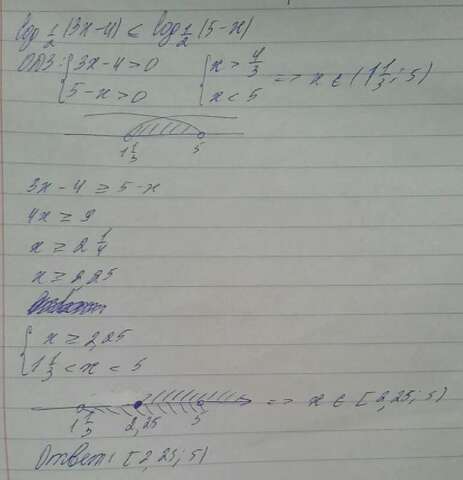 log 1/2 (3x-4) ≤ log 1/2 (5-x)
ОДЗ: { 3x-4>0 { x > 4/3 => x ∈ (1 1/3; 5)
5-x>0 x < 5
1 1/3 5
3x-4 ≥ 5-x
4x ≥ 9
x ≥ 2 1/4
x ≥ 2,25
{ x ≥ 2,25
1 1/3 < x < 5
1 1/3 2,25 5 => x ∈ [2,25; 5)
Ответ: [2,25; 5)